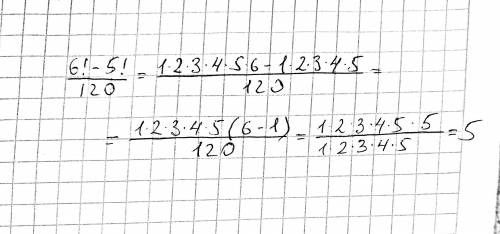 (6! - 5!)/120 = (1·2·3·4·5·6 - 1·2·3·4·5)/120 =
= (1·2·3·4·5(6-1))/120 = (1·2·3·4·5·5)/(1·2·3·4·5) = 5